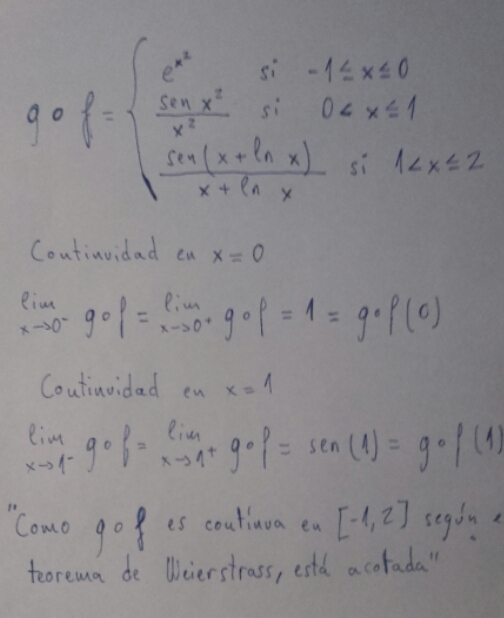 g o f = { e^{x^2} si -1 ≤ x ≤ 0
sen x^2 / x^2 si 0 < x ≤ 1
sen(x + ln x) / x + ln x si 1 < x ≤ 2
Continuidad en x = 0
lim x→0⁻ g o f = lim x→0⁺ g o f = 1 = g o f (0)
Continuidad en x = 1
lim x→1⁻ g o f = lim x→1⁺ g o f = sen (1) = g o f (1)
"Como g o f es contínua en [-1, 2] según e
teorema de Weierstrass, está acotada"